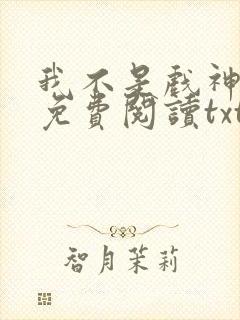 我不是戏神
免費閱讀txt
智月茉莉